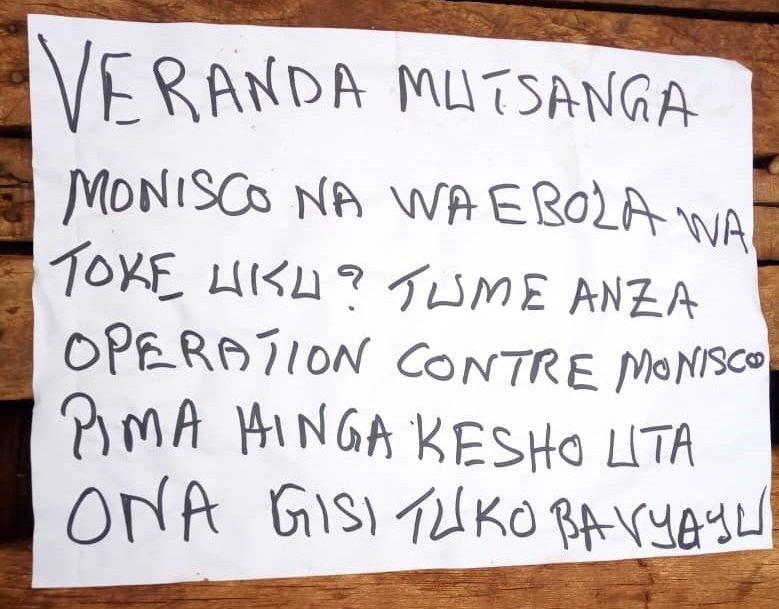 VERANDA MUTSANGA
MONISCO NA WA EBOLA WA
TOKE UKU? TUME ANZA
OPERATION CONTRE MONISCO
PIMA HINGA KESHO UTA
ONA GISI TUKO BAVYAYU